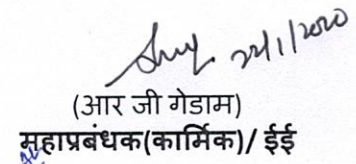 22/1/2020
(आर जी गेडाम)
महाप्रबंधक(कार्मिक)/ ईई